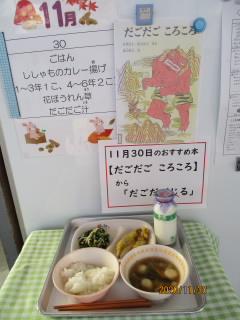 11月
30
ごはん
ししゃものカレー揚げ
1～3年1こ、4～6年2こ
花ほうれん草
だごだご汁
だごだご ころころ
11月30日のおすすめ本
【だごだご ころころ】
から
「だごだごじる」